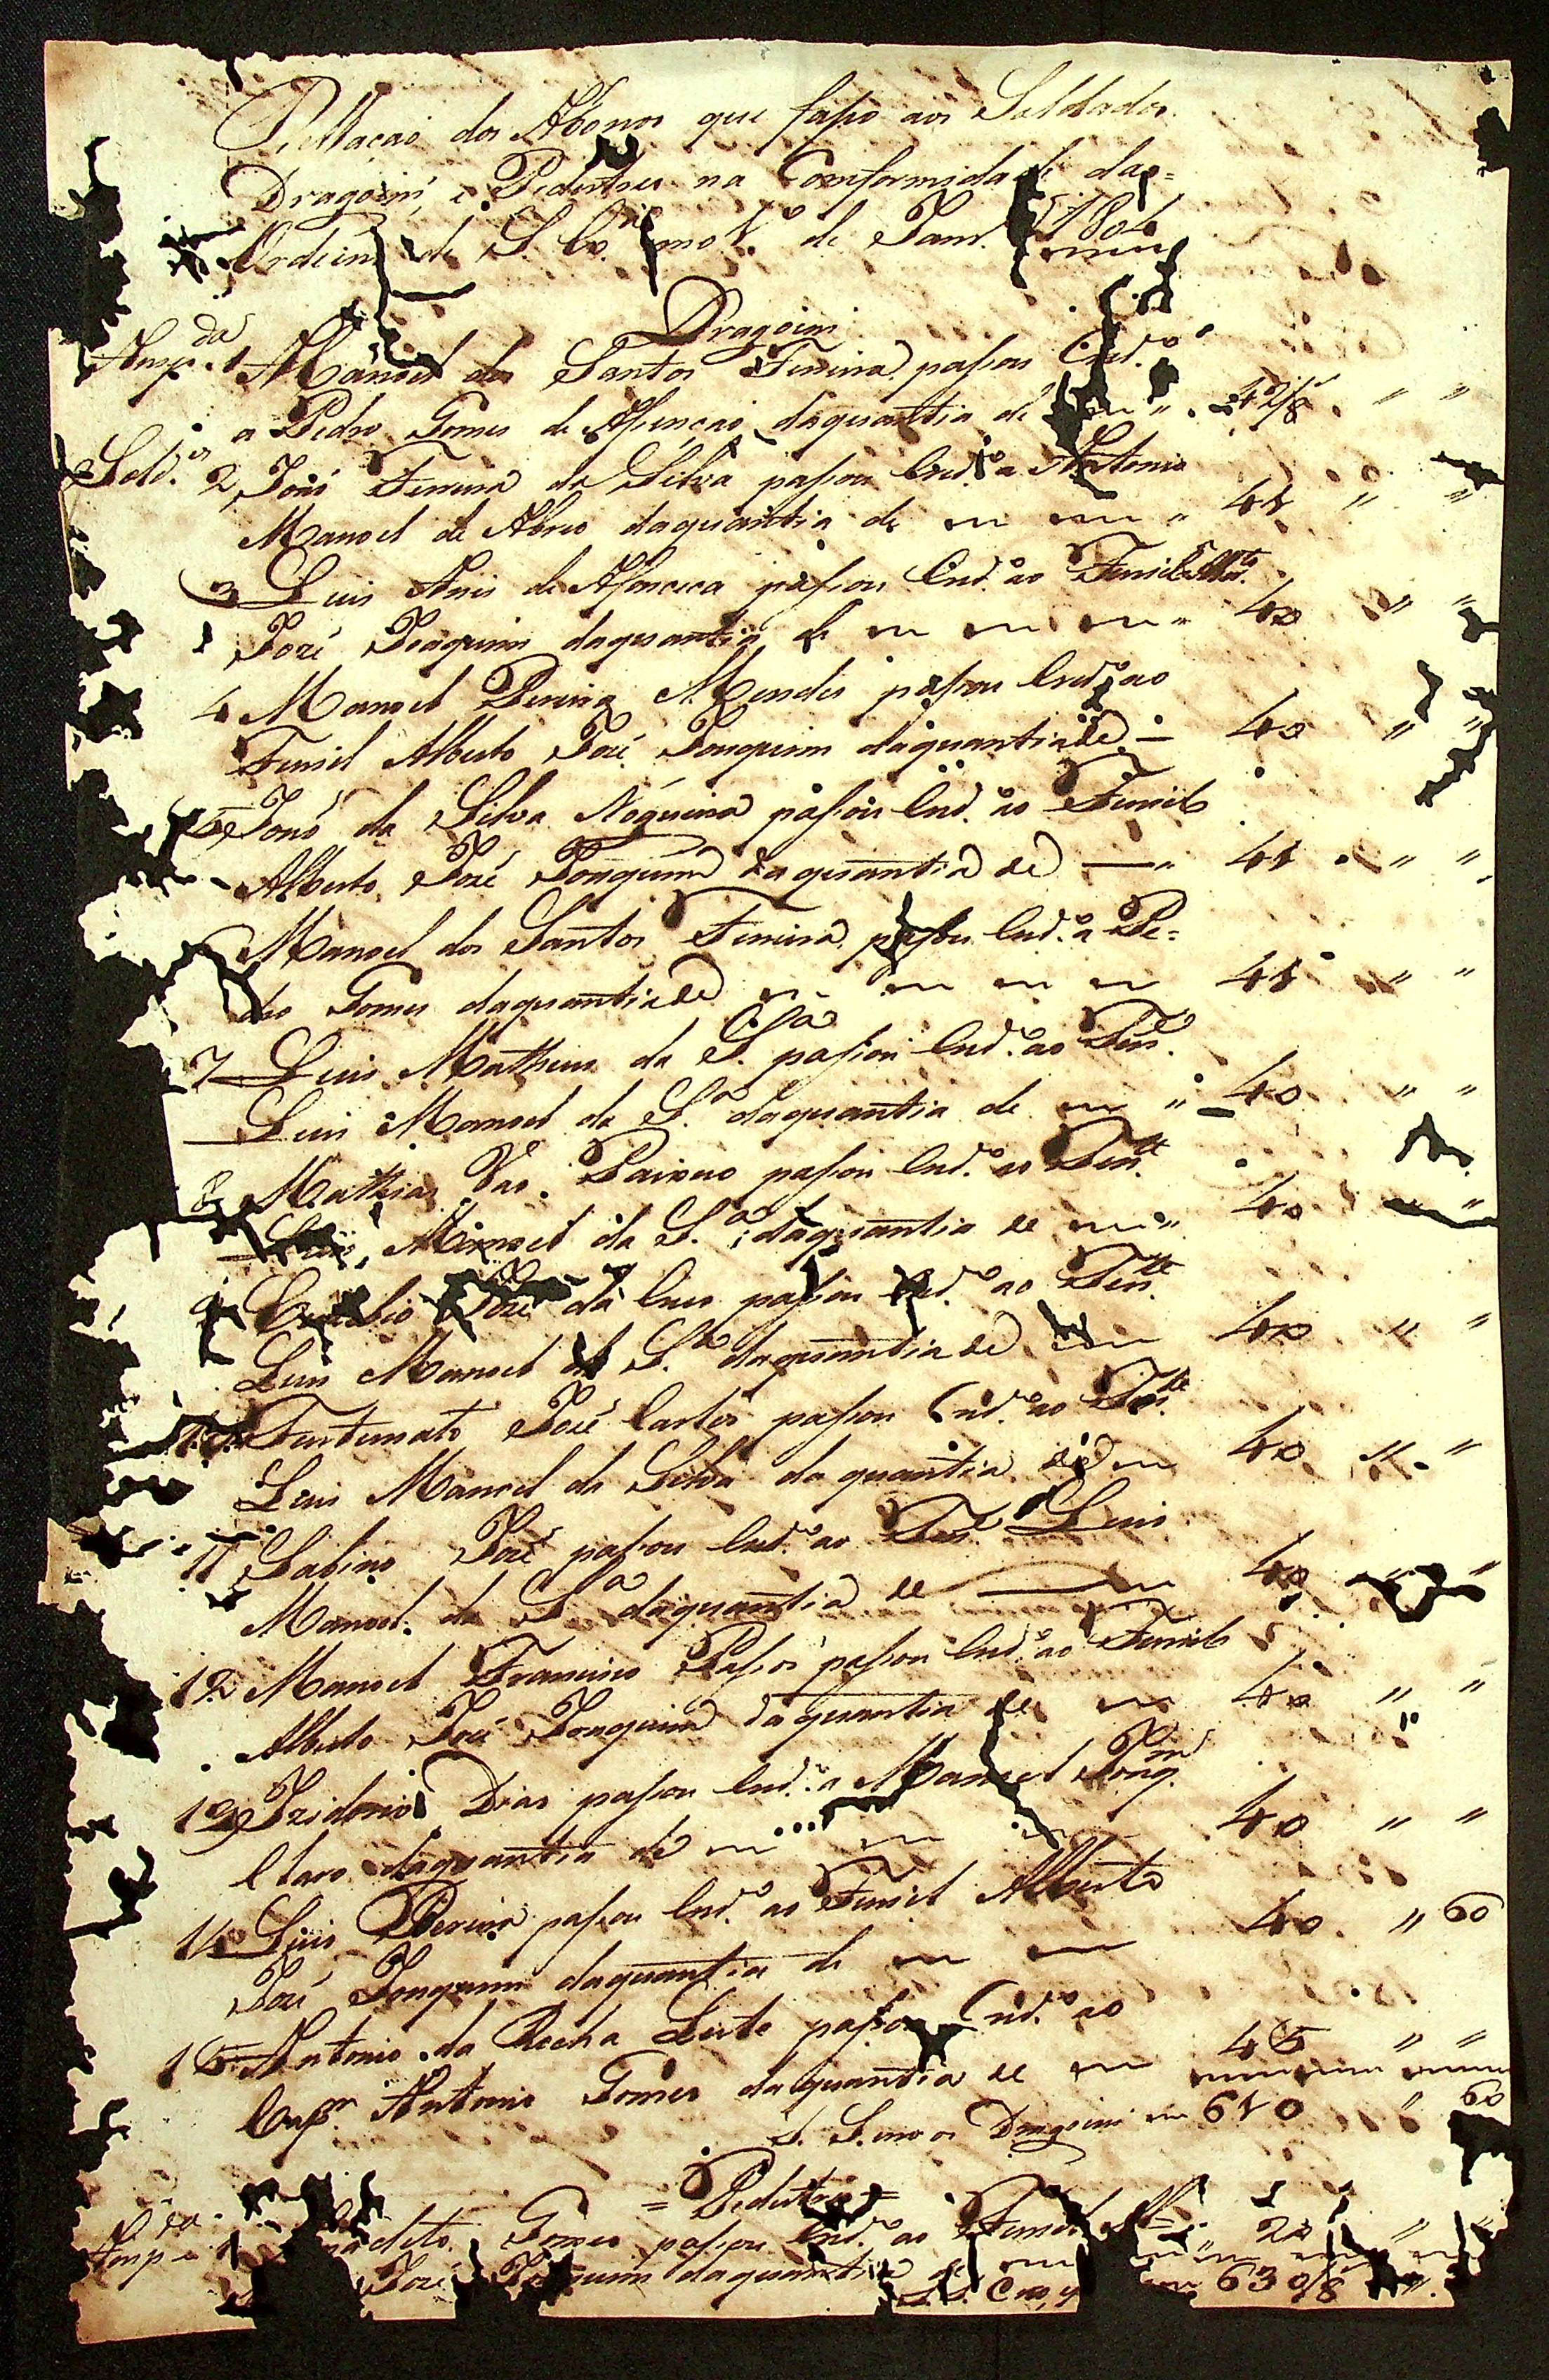 Rellaçaõ dos Abonos que fasso aos Soldados
Dragoins, e Pedestres na Comformidade das=
Ordeins de S. Ex.ª de Janr.º 1804
Dragoins
Anspda 1 Manoel dos Santos Ferreira passou Cred.º
a Pedro Gomes de Assençaõ daquantia de 42/8 " "
Sold.os 2 Joaõ Ferreira da Silva passou Cred.º a Antonio
Manoel de Abreo daquantia de 41 " "
3 Luis Anis de Afonceca passou Cred.º ao Furriel
José Joaquim daquantia de 40 " "
4 Manoel Pereira Mendes passou Cred.º ao
Furriel Alberto José Joaquim daquantia de 40 " "
5 Joaõ da Silva Nogueira passou Cred.º ao Furriel
Alberto José Joaquim daquantia de 41 " "
Manoel dos Santos Ferreira passou Cred.º a Pe=
dro Gomes daquantia de 41 " "
7 Luis Matheus da S.ª passou Cred.º ao Ten.e
Luis Manoel da S.ª daquantia de 40 " "
8 Mathias Vas. passou Cred.º ao Ten.te
Luis Manoel da S.ª daquantia de 40 " "
9 Euzebio José da Cruz passou Cred.º ao Ten.te
Luis Manoel da S.ª daquantia de 40 " "
10 Furtunato José Carlos passou Cred.º ao Ten.te
Luis Manoel da Silva da quantia de 40 " "
11 Sabino José passou Cred.º ao Ten.e Luis
Manoel da S.ª daquantia de 40 " "
12 Manoel Francisco Passos passou Cred.º ao Furriel
Alberto José Joaquim daquantia de 40 " "
13 Izidorio Dias passou Cred.º a Manoel Joaq.m
Claro daquantia de 40 " "
14 Luis Pereira passou Cred.º ao Furriel Alberto
José Joaquim daquantia de 40 " 60
15 Antonio da Rocha Leite passou Cred.º ao
Cap.m Antonio Gomes daquantia de 45 " "
S. S. os Dragoins 610 " 60
= Pedestres =
Anspda 1 Gomes passou Cred.º ao Furriel Al= 20 " "
José Joaquim daquantia de
630/8